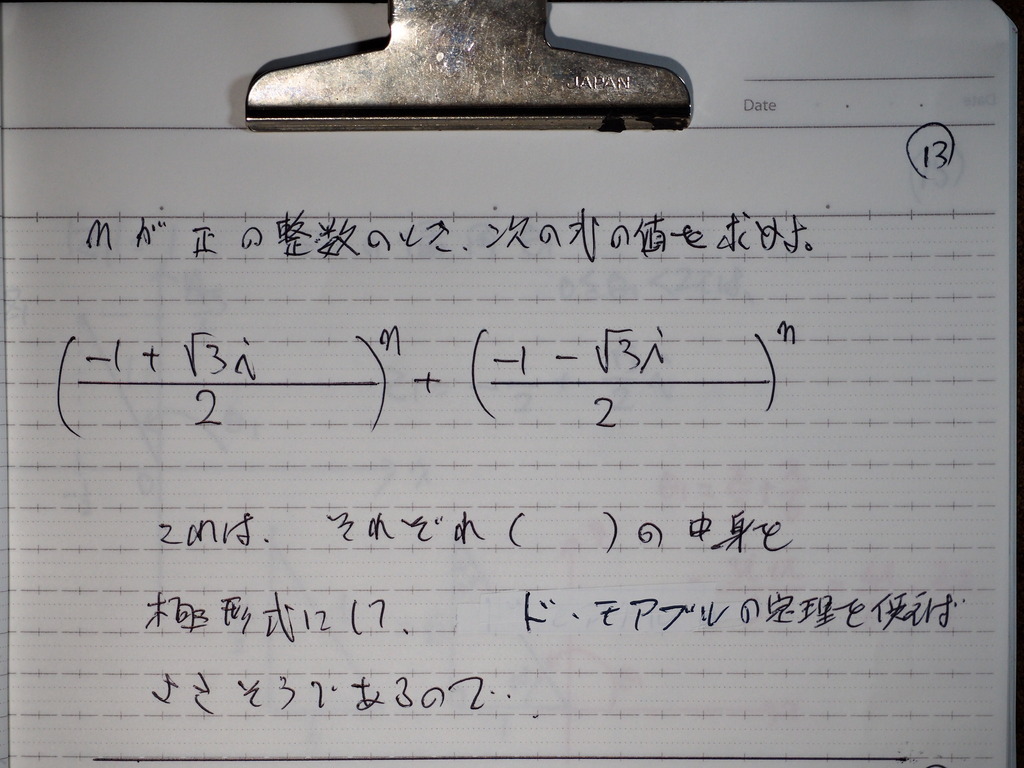 JAPAN
Date
13
nが正の整数のとき、次の式の値を求めよ。
(-1+√3i/2)^n + (-1-√3i/2)^n
これは、それぞれ( )の中身を
極形式にして、ド・モアブルの定理を使えば
よさそうであるので…